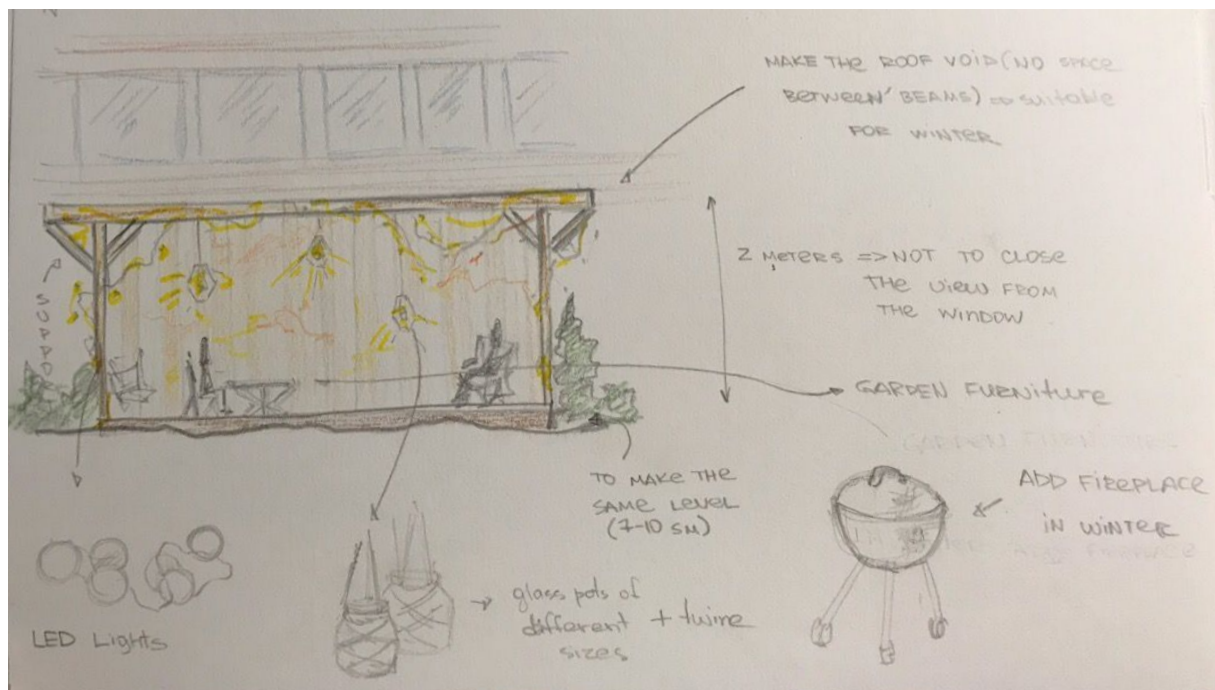 MAKE THE ROOF VOID (NO SPACE
BETWEEN' BEAMS) => suitable
FOR WINTER
2 METERS => NOT TO CLOSE
THE VIEW FROM
THE WINDOW
SUPPO
GARDEN FURNiture
TO MAKE THE
SAME LEVEL
(7-10 SM)
ADD FIREPLACE
iN WINTER
glass pots of
different + twine
sizes
LED Lights